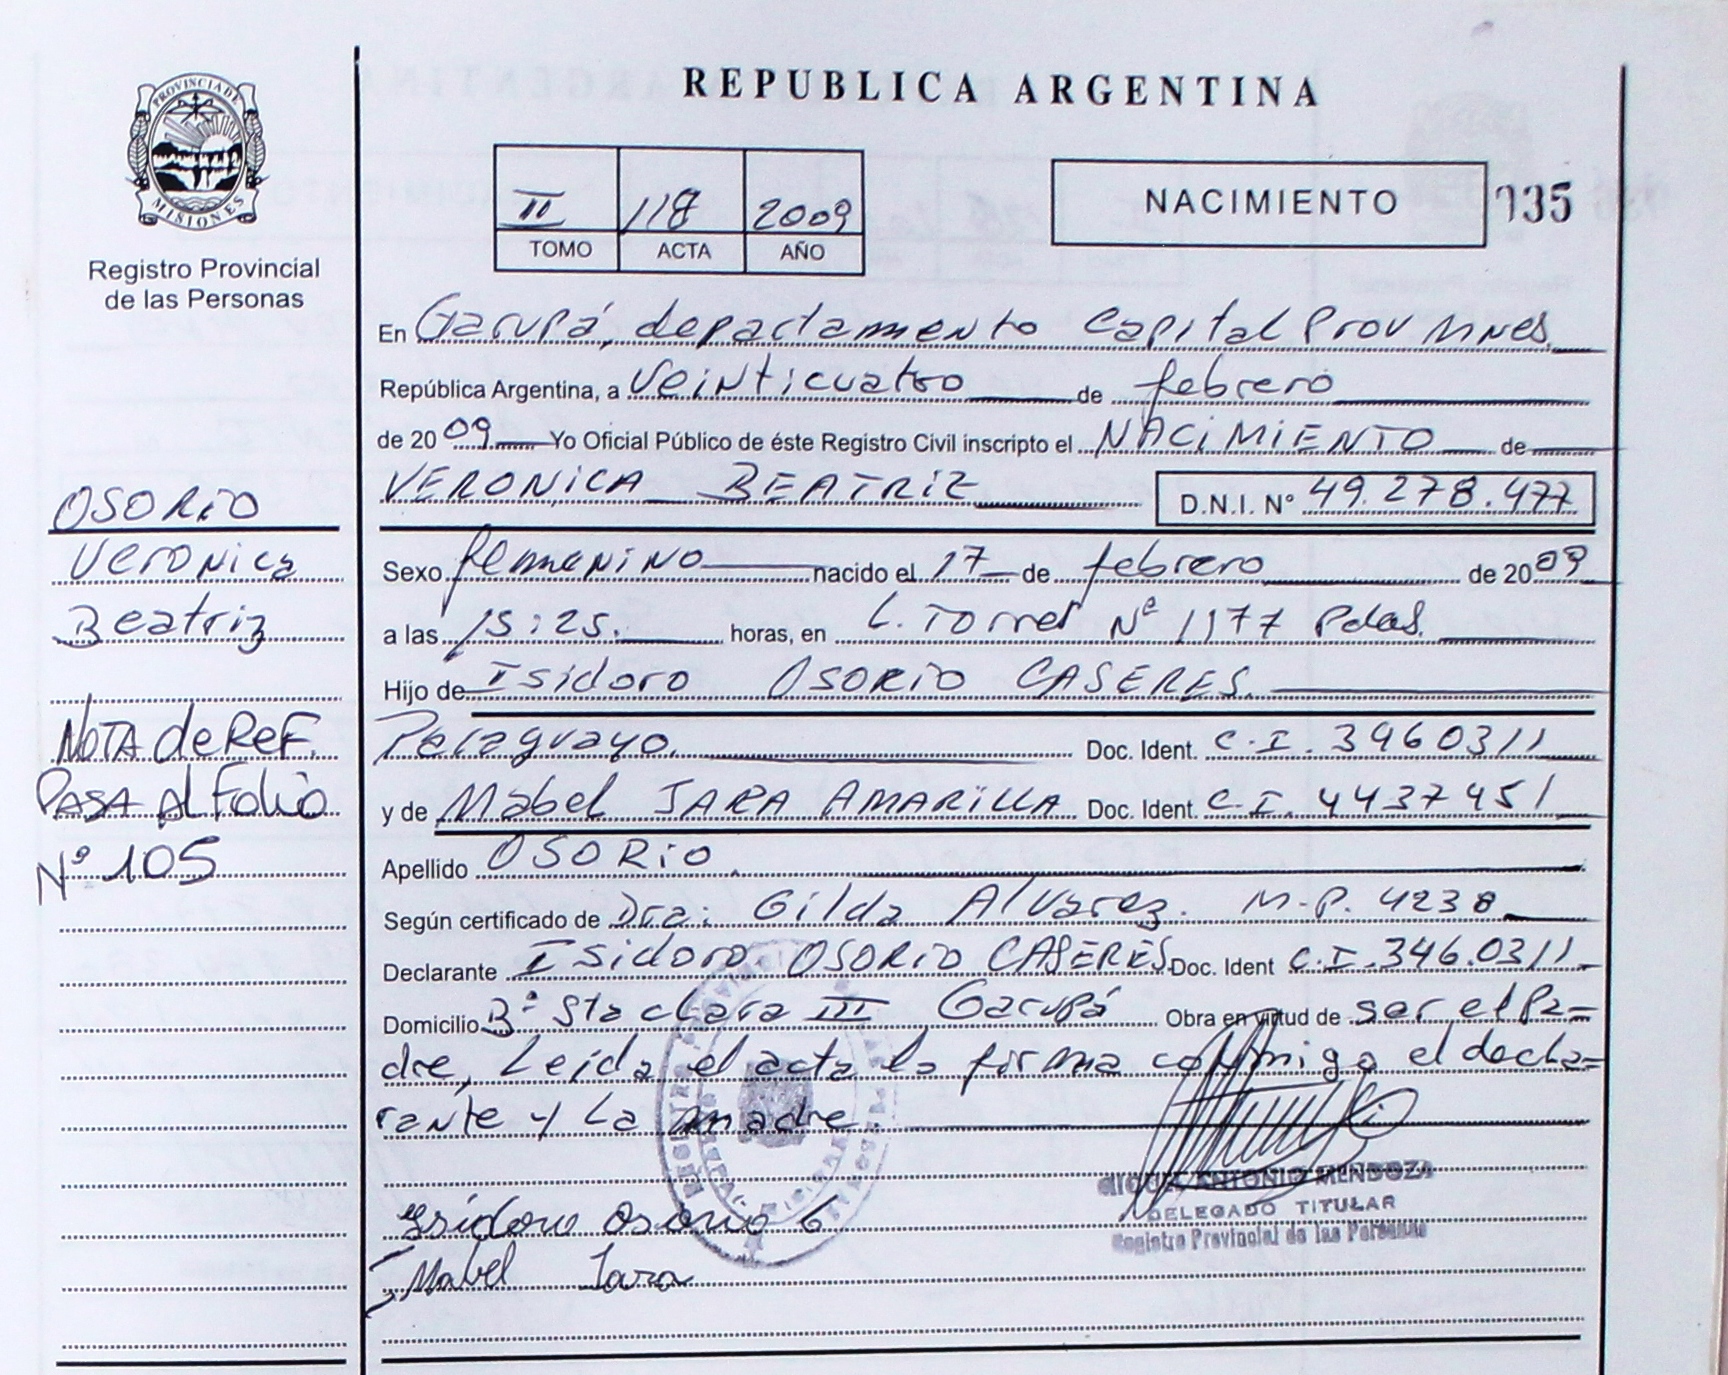 PROVINCIA DE
MISIONES
Registro Provincial
de las Personas
REPUBLICA ARGENTINA
II 118 2009
TOMO ACTA AÑO
NACIMIENTO
135
En Garupá, departamento Capital Prov Mnes.
República Argentina, a veinticuatro de febrero
de 2009 Yo Oficial Público de éste Registro Civil inscripto el NACIMIENTO de
VERONICA BEATRIZ D.N.I. Nº 49.278.477
Sexo femenino nacido el 17 de febrero de 2009
a las 15:25. horas, en L. Torres Nº 1177 Pdas.
Hijo de Isidoro OSORIO CASERES.
Paraguayo. Doc. Ident. C.I. 3460311
y de Mabel JARA AMARILLA Doc. Ident. C.I. 4437451
Apellido OSORIO.
Según certificado de Dra. Gilda Alvarez. M.P. 4238
Declarante Isidoro OSORIO CASERES Doc. Ident C.I. 346.0311
Domicilio Bº Sta clara III Garupá Obra en virtud de ser el Pa=
dre, Leída el acta la firma conmigo el decla=
rante y La madre.
Isidoro Osorio C
Mabel Jara
ANTONIO MENDOZA
DELEGADO TITULAR
Registro Provincial de las Personas
OSORIO
Veronica
Beatriz
NOTA de REF.
PASA Al Folio
Nº 105